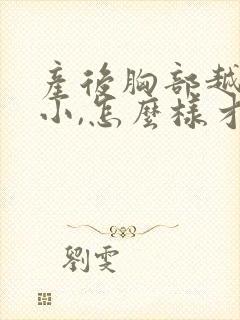 產後胸部越
小,怎麼樣才
劉雯